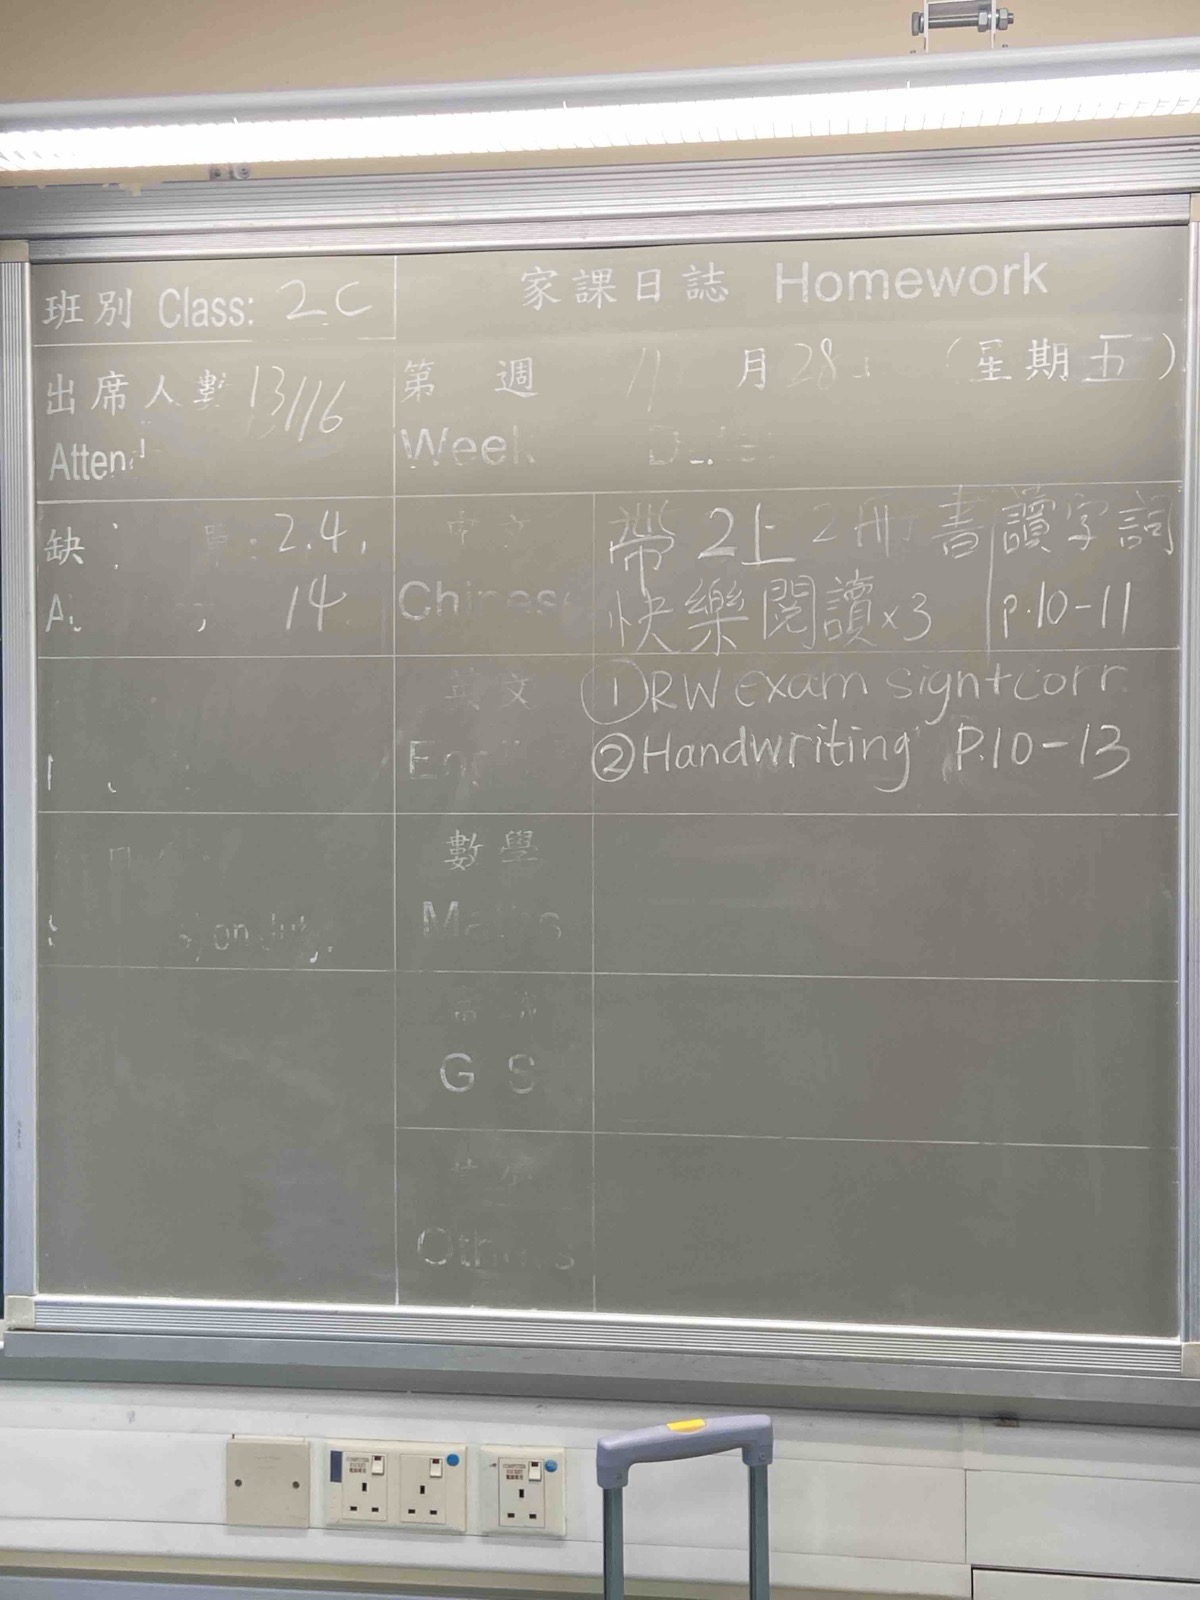 班別 Class: 2C
家課日誌 Homework
出席人數 13/16
第 週 11 月 28 (星期五)
Week Date
缺 2.4.
14
中文
Chinese
帶2上2冊書
快樂閱讀x3
讀字詞
p.10-11
英文
①RW exam sign+corr.
②Handwriting P.10-13
數學
Maths
on duty
G S
Others